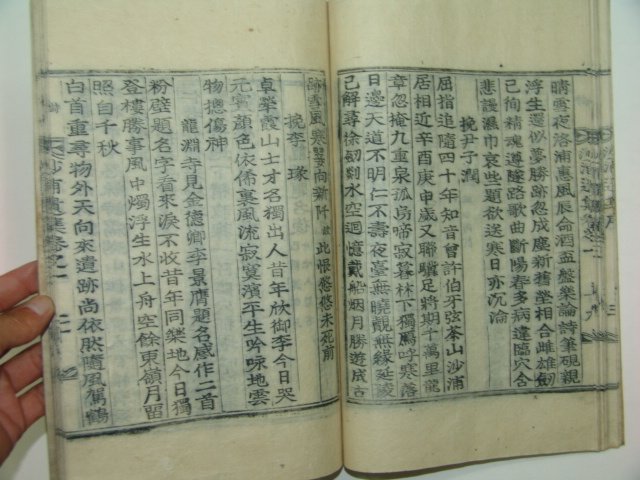 晴雲夜洛浦惠風辰命酒盃盤樂論詩筆硯親
浮生還似夢勝跡忽成塵新舊塋相合雌雄劒
已徇精魂導隧路歌曲斷陽春多病違臨穴含
悲謾濕巾哀些題欲送寒日亦沉淪
挽尹子潤
屈指追隨四十年知音曾許伯牙弦峯山沙浦
居相近辛酉庚申歲又聯驥足將期千萬里龍
章忽掩九重泉孤墳啼寂暮林下獨鴈呼寒落
日邊天道不明仁不壽夜臺無曉覬無緣延陵
已解尋徐劒剡水空迴憶戴船烟月勝遊成古
跡雪風寒 向新阡 此恨悠悠未死前
挽李瑑
卓犖霞山士才名獨出人昔年欣御李今日哭
元賓顔色依俙裏風流寂寞濱平生吟咏地雲
物摠傷神
龍淵寺見金德卿李景膺題名感作二首
粉壁題名字看來淚不收昔年同樂地今日獨
登樓勝事風中燭浮生水上舟空餘東嶺月留
照白千秋
白首重尋物外天向來遺跡尚依然隨風駕鶴
沙浦遺集卷之一